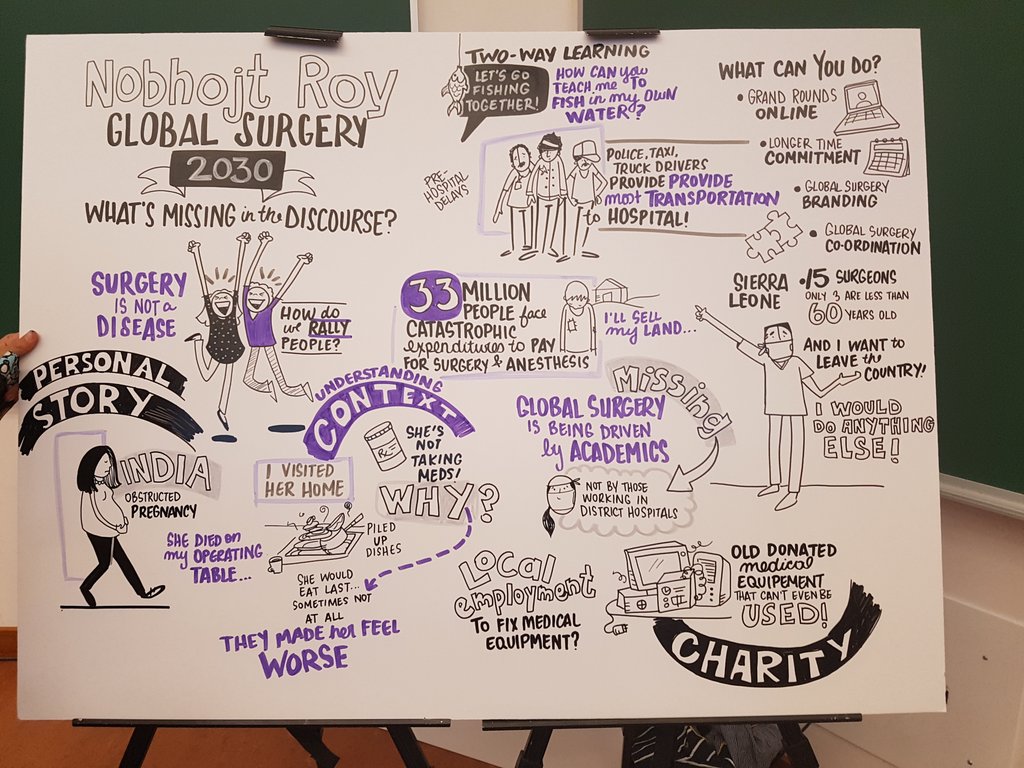 Nobhojt Roy
GLOBAL SURGERY
2030
WHAT'S MISSING in the DISCOURSE?
SURGERY
IS NOT a
DISEASE
HOW do
we RALLY
PEOPLE?
PERSONAL
STORY
INDIA
OBSTRUCTED
PREGNANCY
SHE DIED on
my OPERATING
TABLE...
UNDERSTANDING
CONTEXT
I VISITED
HER HOME
RX
SHE'S
NOT
TAKING
MEDS!
WHY?
PILED
UP
DISHES
SHE WOULD
EAT LAST...
SOMETIMES NOT
AT ALL
THEY MADE her FEEL
WORSE
TWO-WAY LEARNING
LET'S GO
FISHING
TOGETHER!
HOW CAN you
TEACH me TO
FISH in my OWN
WATER?
PRE
HOSPITAL
DELAYS
POLICE, TAXI,
TRUCK DRIVERS
PROVIDE PROVIDE
most TRANSPORTATION
to HOSPITAL!
33 MILLION
PEOPLE face
CATASTROPHIC
expenditures to PAY
FOR SURGERY & ANESTHESIA
I'LL SELL
my LAND...
MISSING
GLOBAL SURGERY
IS BEING DRIVEN
by ACADEMICS
NOT BY THOSE
WORKING IN
DISTRICT HOSPITALS
LOCAL
employment
TO FIX MEDICAL
EQUIPMENT?
OLD DONATED
medical
EQUIPEMENT
THAT CAN'T EVEN BE
USED!
CHARITY
WHAT CAN YOU DO?
• GRAND ROUNDS
ONLINE
• LONGER TIME
COMMITMENT
• GLOBAL SURGERY
BRANDING
• GLOBAL SURGERY
CO-ORDINATION
SIERRA
LEONE
• 15 SURGEONS
ONLY 3 ARE LESS THAN
60 YEARS OLD
AND I WANT to
LEAVE the
COUNTRY!
I WOULD
DO ANYTHING
ELSE!